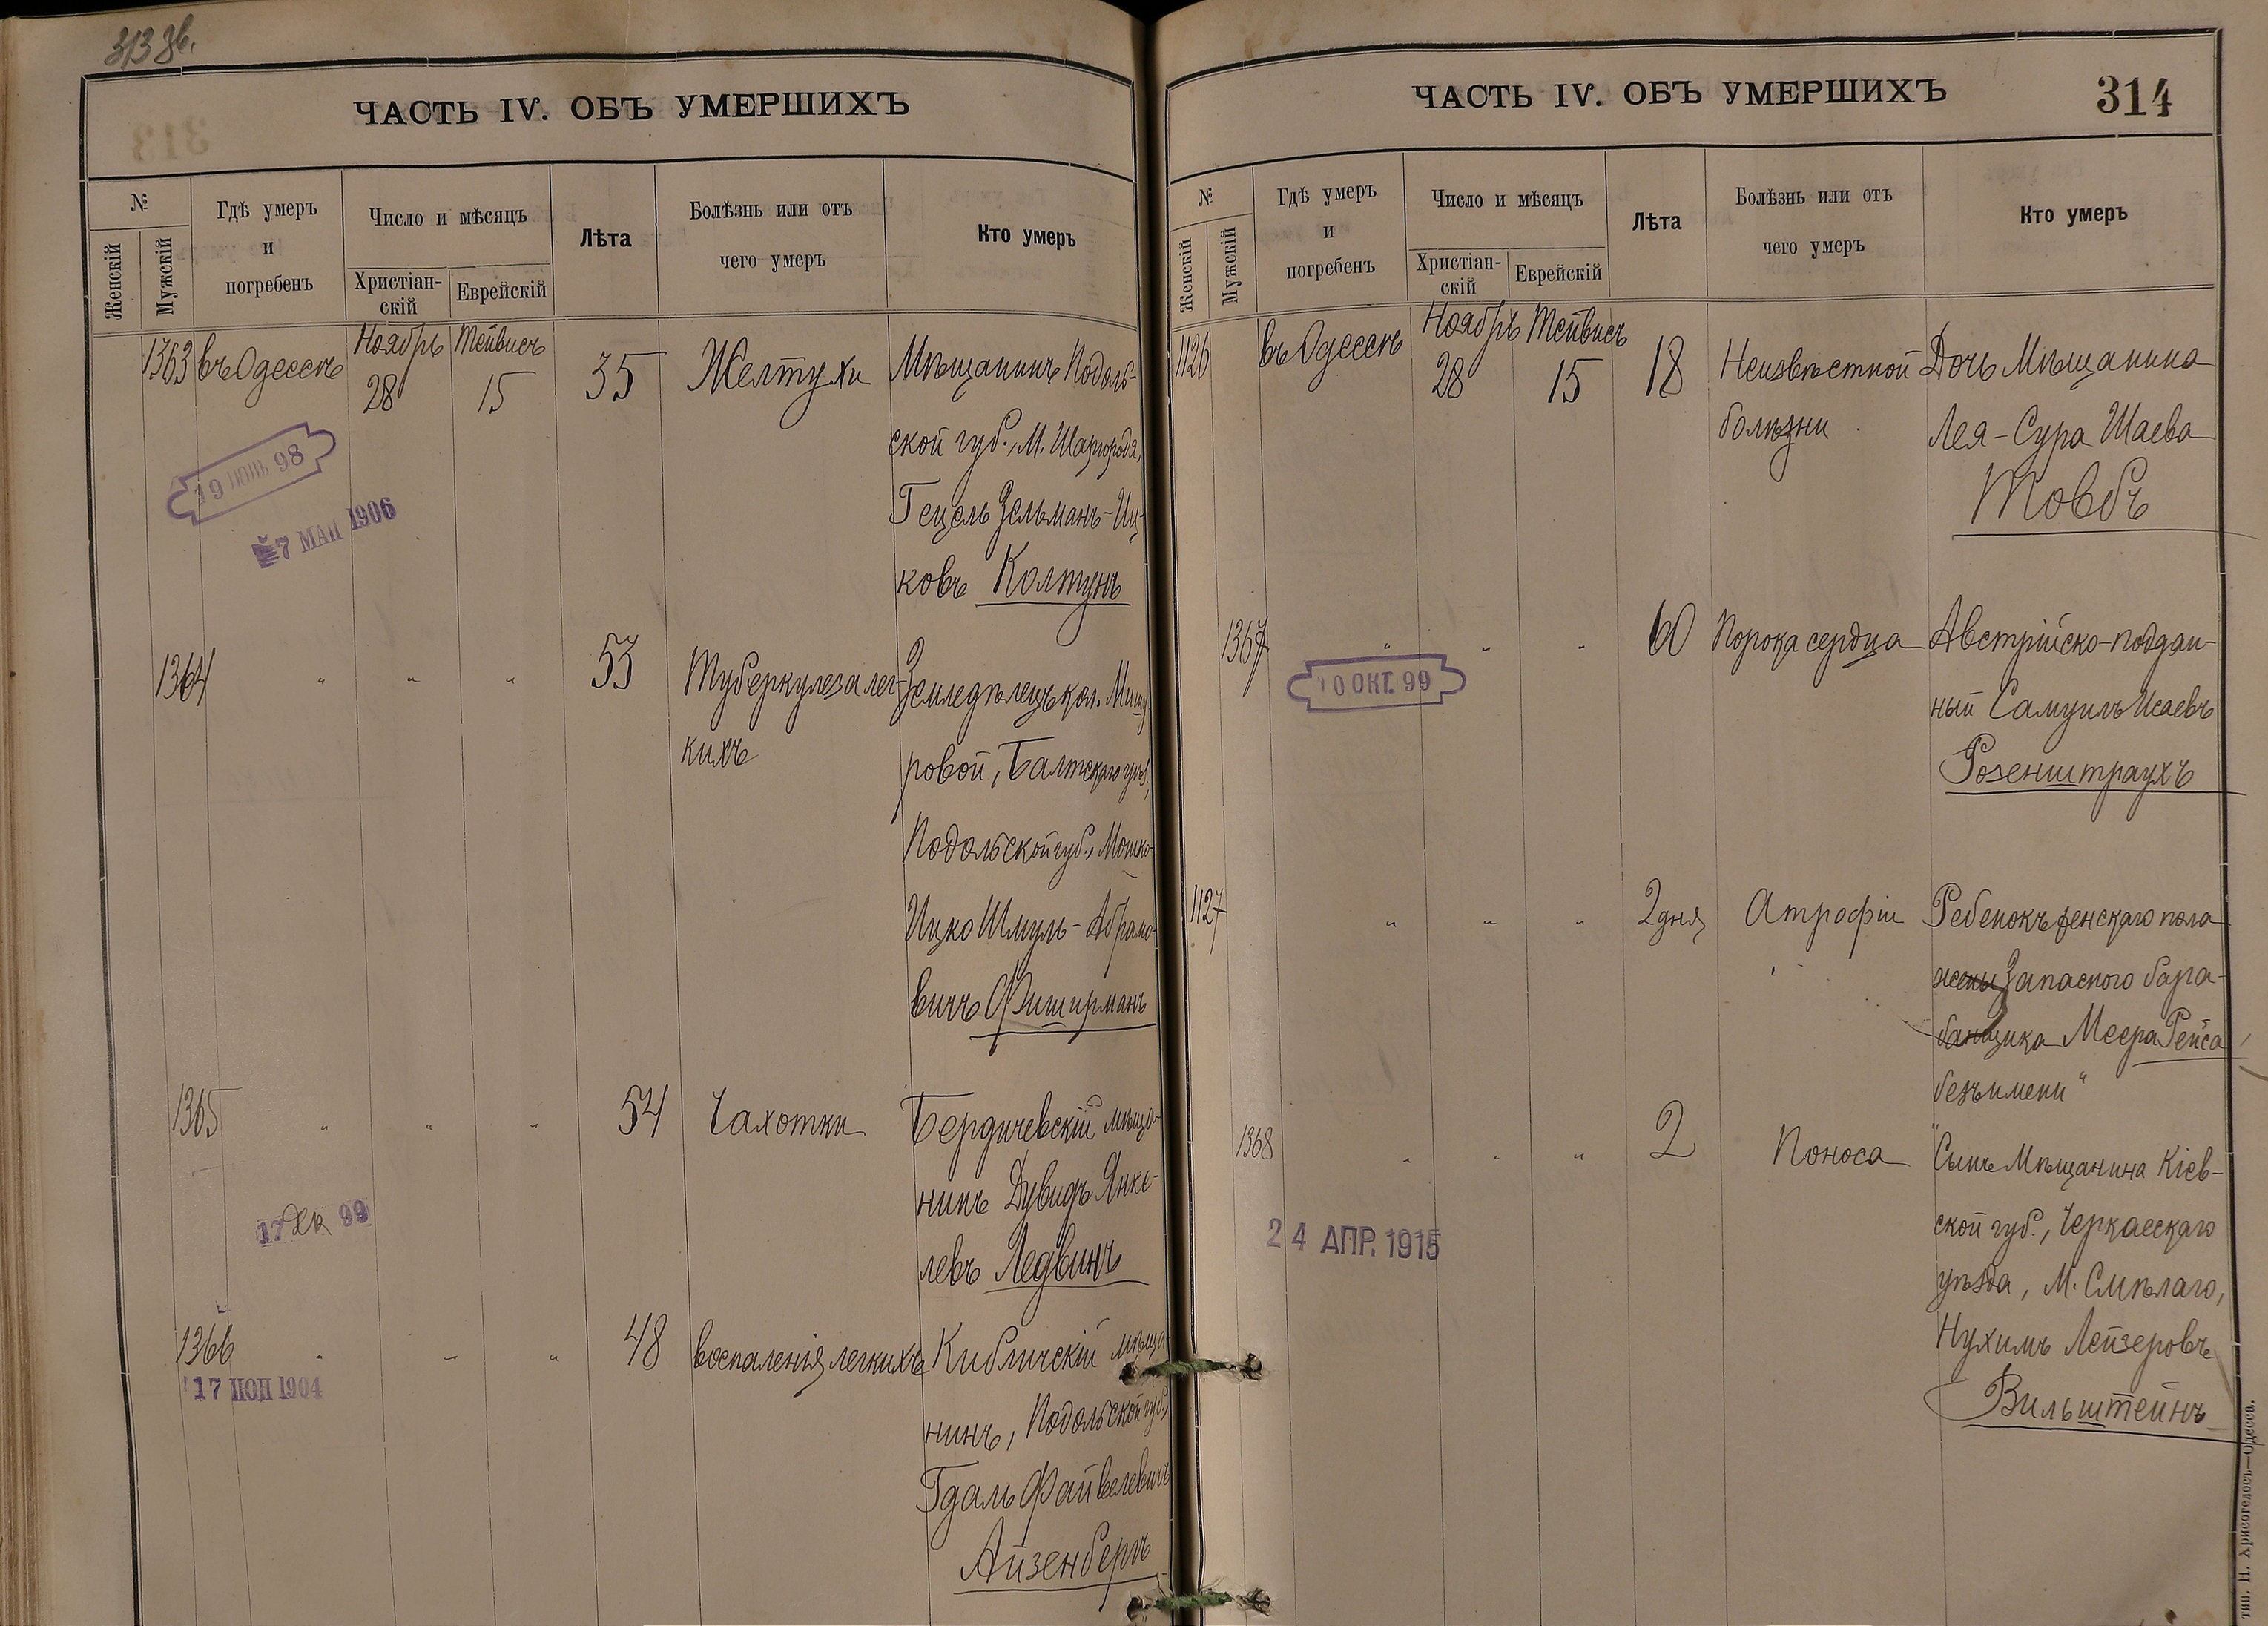 313 зв.
ЧАСТЬ IV. ОБЪ УМЕРШИХЪ
№
Женскій
Мужскій
Гдѣ умеръ
и
погребенъ
Число и мѣсяцъ
Христіан-
скій
Еврейскій
Лѣта
Болѣзнь или отъ
чего умеръ
Кто умеръ
1363 въ Одессѣ Ноябрь 28 Тейвисъ 15 35 Желтухи Мѣщанинъ Подоль-
ской губ., М. Шаргородя,
Гецель Зельманъ-Иц-
ковъ Колтунъ
19 ІЮНЬ 98
7 МАЙ 1906
1364 " " " 53 Туберкулеза лег- Земледѣлецъ кол.
кихъ
ровой, Балтскаго уѣз.,
Подольской губ., Мошко-
Ицко Шмуль-Абрамо-
вичъ Фиширманъ
1365 " " " 54 Чахотки Бердичевскій мѣща-
нинъ Дувидъ Янке-
левъ Ледвинъ
17 Дек 99
1366 " " " 48 воспаленія легкихъ Кибличскій мѣща-
нинъ, Подольской губ.,
Гдаль Файвелевичъ
Айзенбергъ
17 1904
ЧАСТЬ IV. ОБЪ УМЕРШИХЪ
314
№
Женскій
Мужскій
Гдѣ умеръ
и
погребенъ
Число и мѣсяцъ
Христіан-
скій
Еврейскій
Лѣта
Болѣзнь или отъ
чего умеръ
Кто умеръ
1126 въ Одессѣ Ноябрь 28 Тейвисъ 15 18 Неизвѣстной Дочь Мѣщанина
болѣзни Лея-Сура Шаева
Товбъ
1367 " " " 60 Порока сердца Австрійско-поддан-
ный Самуилъ Исаевъ
Розенштраухъ
10 ОКТ. 99
1127 " " " 2 дня Атрофіи Ребенокъ женскаго пола
жены Запасного бара-
банщика Меера Рейса
безъимени"
1368 " " " 2 Поноса Сынъ Мѣщанина Кіев-
ской губ., Черкасскаго
уѣзда, М. Смѣлаго,
Нухимъ Лейзеровъ
Вильштейнъ
24 АПР. 1915
тип. Н. Хрисогелосъ—Одесса.